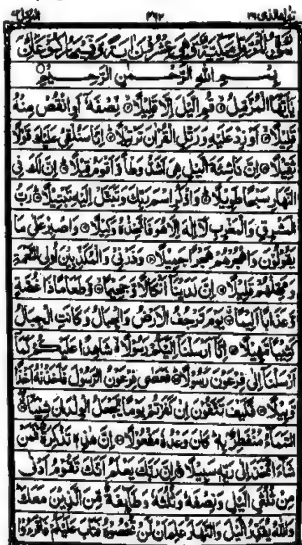 بِسْمِ اللهِ الرَّحْمٰنِ الرَّحِيْمِ
يٰٓاَيُّهَا الْمُزَّمِّلُ قُمِ الَّيْلَ اِلَّا قَلِيْلًا نِّصْفَهٗٓ اَوِ انْقُصْ مِنْهُ
قَلِيْلًا اَوْ زِدْ عَلَيْهِ وَرَتِّلِ الْقُرْاٰنَ تَرْتِيْلًا اِنَّا سَنُلْقِيْ عَلَيْكَ قَوْلًا
ثَقِيْلًا اِنَّ نَاشِئَةَ الَّيْلِ هِيَ اَشَدُّ وَطْاً وَّاَقْوَمُ قِيْلًا اِنَّ لَكَ فِي
النَّهَارِ سَبْحًا طَوِيْلًا وَاذْكُرِ اسْمَ رَبِّكَ وَتَبَتَّلْ اِلَيْهِ تَبْتِيْلًا رَبُّ
الْمَشْرِقِ وَالْمَغْرِبِ لَآ اِلٰهَ اِلَّا هُوَ فَاتَّخِذْهُ وَكِيْلًا وَاصْبِرْ عَلٰى مَا
يَقُوْلُوْنَ وَاهْجُرْهُمْ هَجْرًا جَمِيْلًا وَذَرْنِيْ وَالْمُكَذِّبِيْنَ اُولِي النَّعْمَةِ
وَمَهِّلْهُمْ قَلِيْلًا اِنَّ لَدَيْنَآ اَنْكَالًا وَّجَحِيْمًا وَّطَعَامًا ذَا غُصَّةٍ
وَّعَذَابًا اَلِيْمًا يَوْمَ تَرْجُفُ الْاَرْضُ وَالْجِبَالُ وَكَانَتِ الْجِبَالُ
كَثِيْبًا مَّهِيْلًا اِنَّآ اَرْسَلْنَآ اِلَيْكُمْ رَسُوْلًا شَاهِدًا عَلَيْكُمْ كَمَآ
اَرْسَلْنَآ اِلٰى فِرْعَوْنَ رَسُوْلًا فَعَصٰى فِرْعَوْنُ الرَّسُوْلَ فَاَخَذْنٰهُ اَخْذًا
وَّبِيْلًا فَكَيْفَ تَتَّقُوْنَ اِنْ كَفَرْتُمْ يَوْمًا يَّجْعَلُ الْوِلْدَانَ شِيْبًا
السَّمَآءُ مُنْفَطِرٌ بِهٖ كَانَ وَعْدُهٗ مَفْعُوْلًا اِنَّ هٰذِهٖ تَذْكِرَةٌ فَمَنْ
شَآءَ اتَّخَذَ اِلٰى رَبِّهٖ سَبِيْلًا اِنَّ رَبَّكَ يَعْلَمُ اَنَّكَ تَقُوْمُ اَدْنٰى
مِنْ ثُلُثَيِ الَّيْلِ وَنِصْفَهٗ وَثُلُثَهٗ وَطَآئِفَةٌ مِّنَ الَّذِيْنَ مَعَكَ
وَاللهُ يُقَدِّرُ الَّيْلَ وَالنَّهَارَ عَلِمَ اَنْ لَّنْ تُحْصُوْهُ فَتَابَ عَلَيْكُمْ فَاقْرَءُوْا